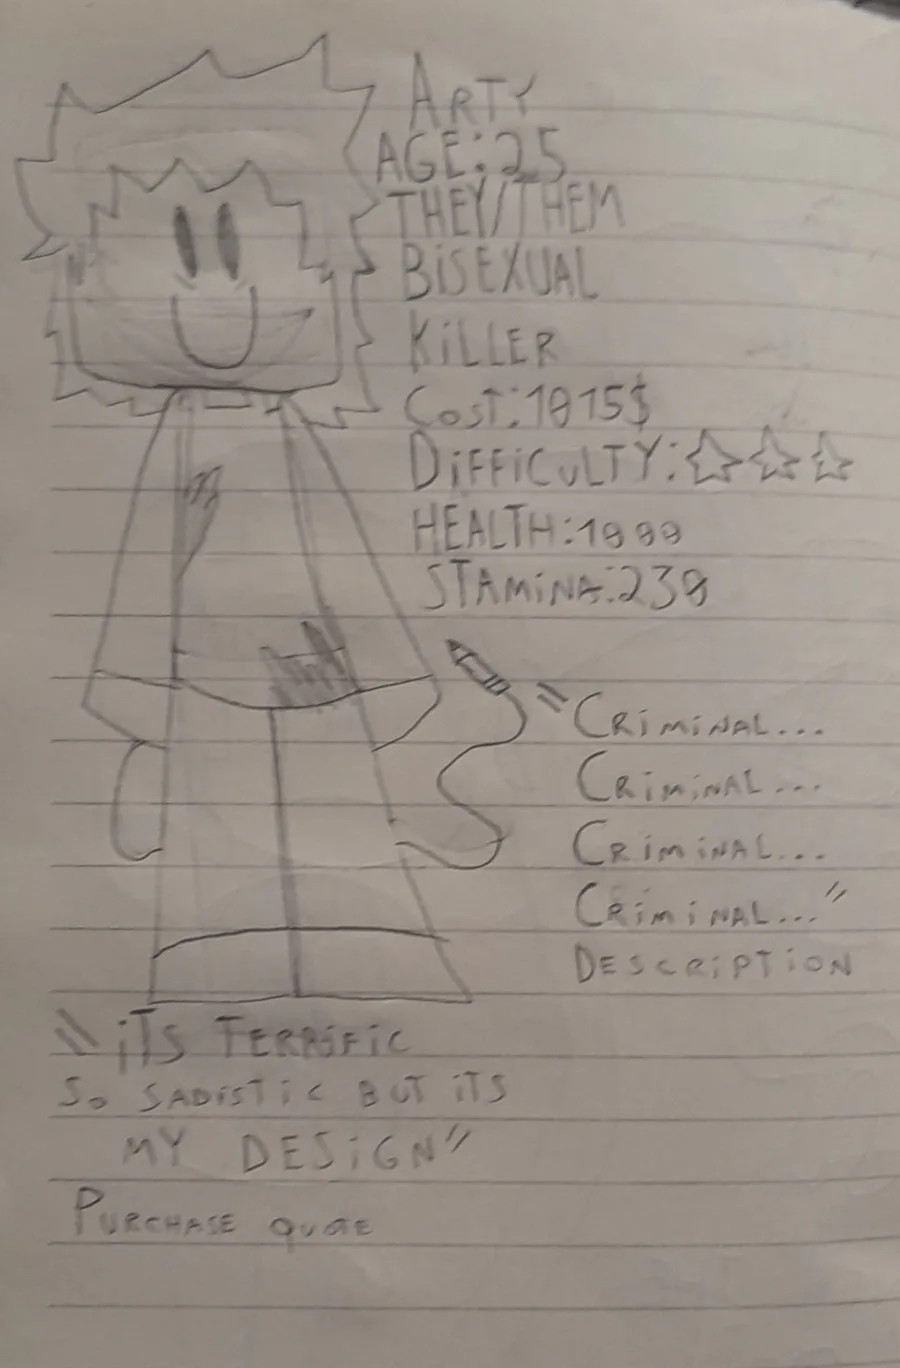 ARTY
AGE:25
THEY/THEM
BiSEXUAL
KiLLER
COST:1015$
DiFFiCULTY:☆☆☆
HEALTH:1000
STAMiNA:230
"CRiMiNAL...
CRiMiNAL...
CRiMiNAL...
CRiMiNAL..."
DESCRiPTiON
"iTS TERRiFiC
SO SADiSTiC BUT iTS
MY DESiGN"
PURCHASE QUOTE